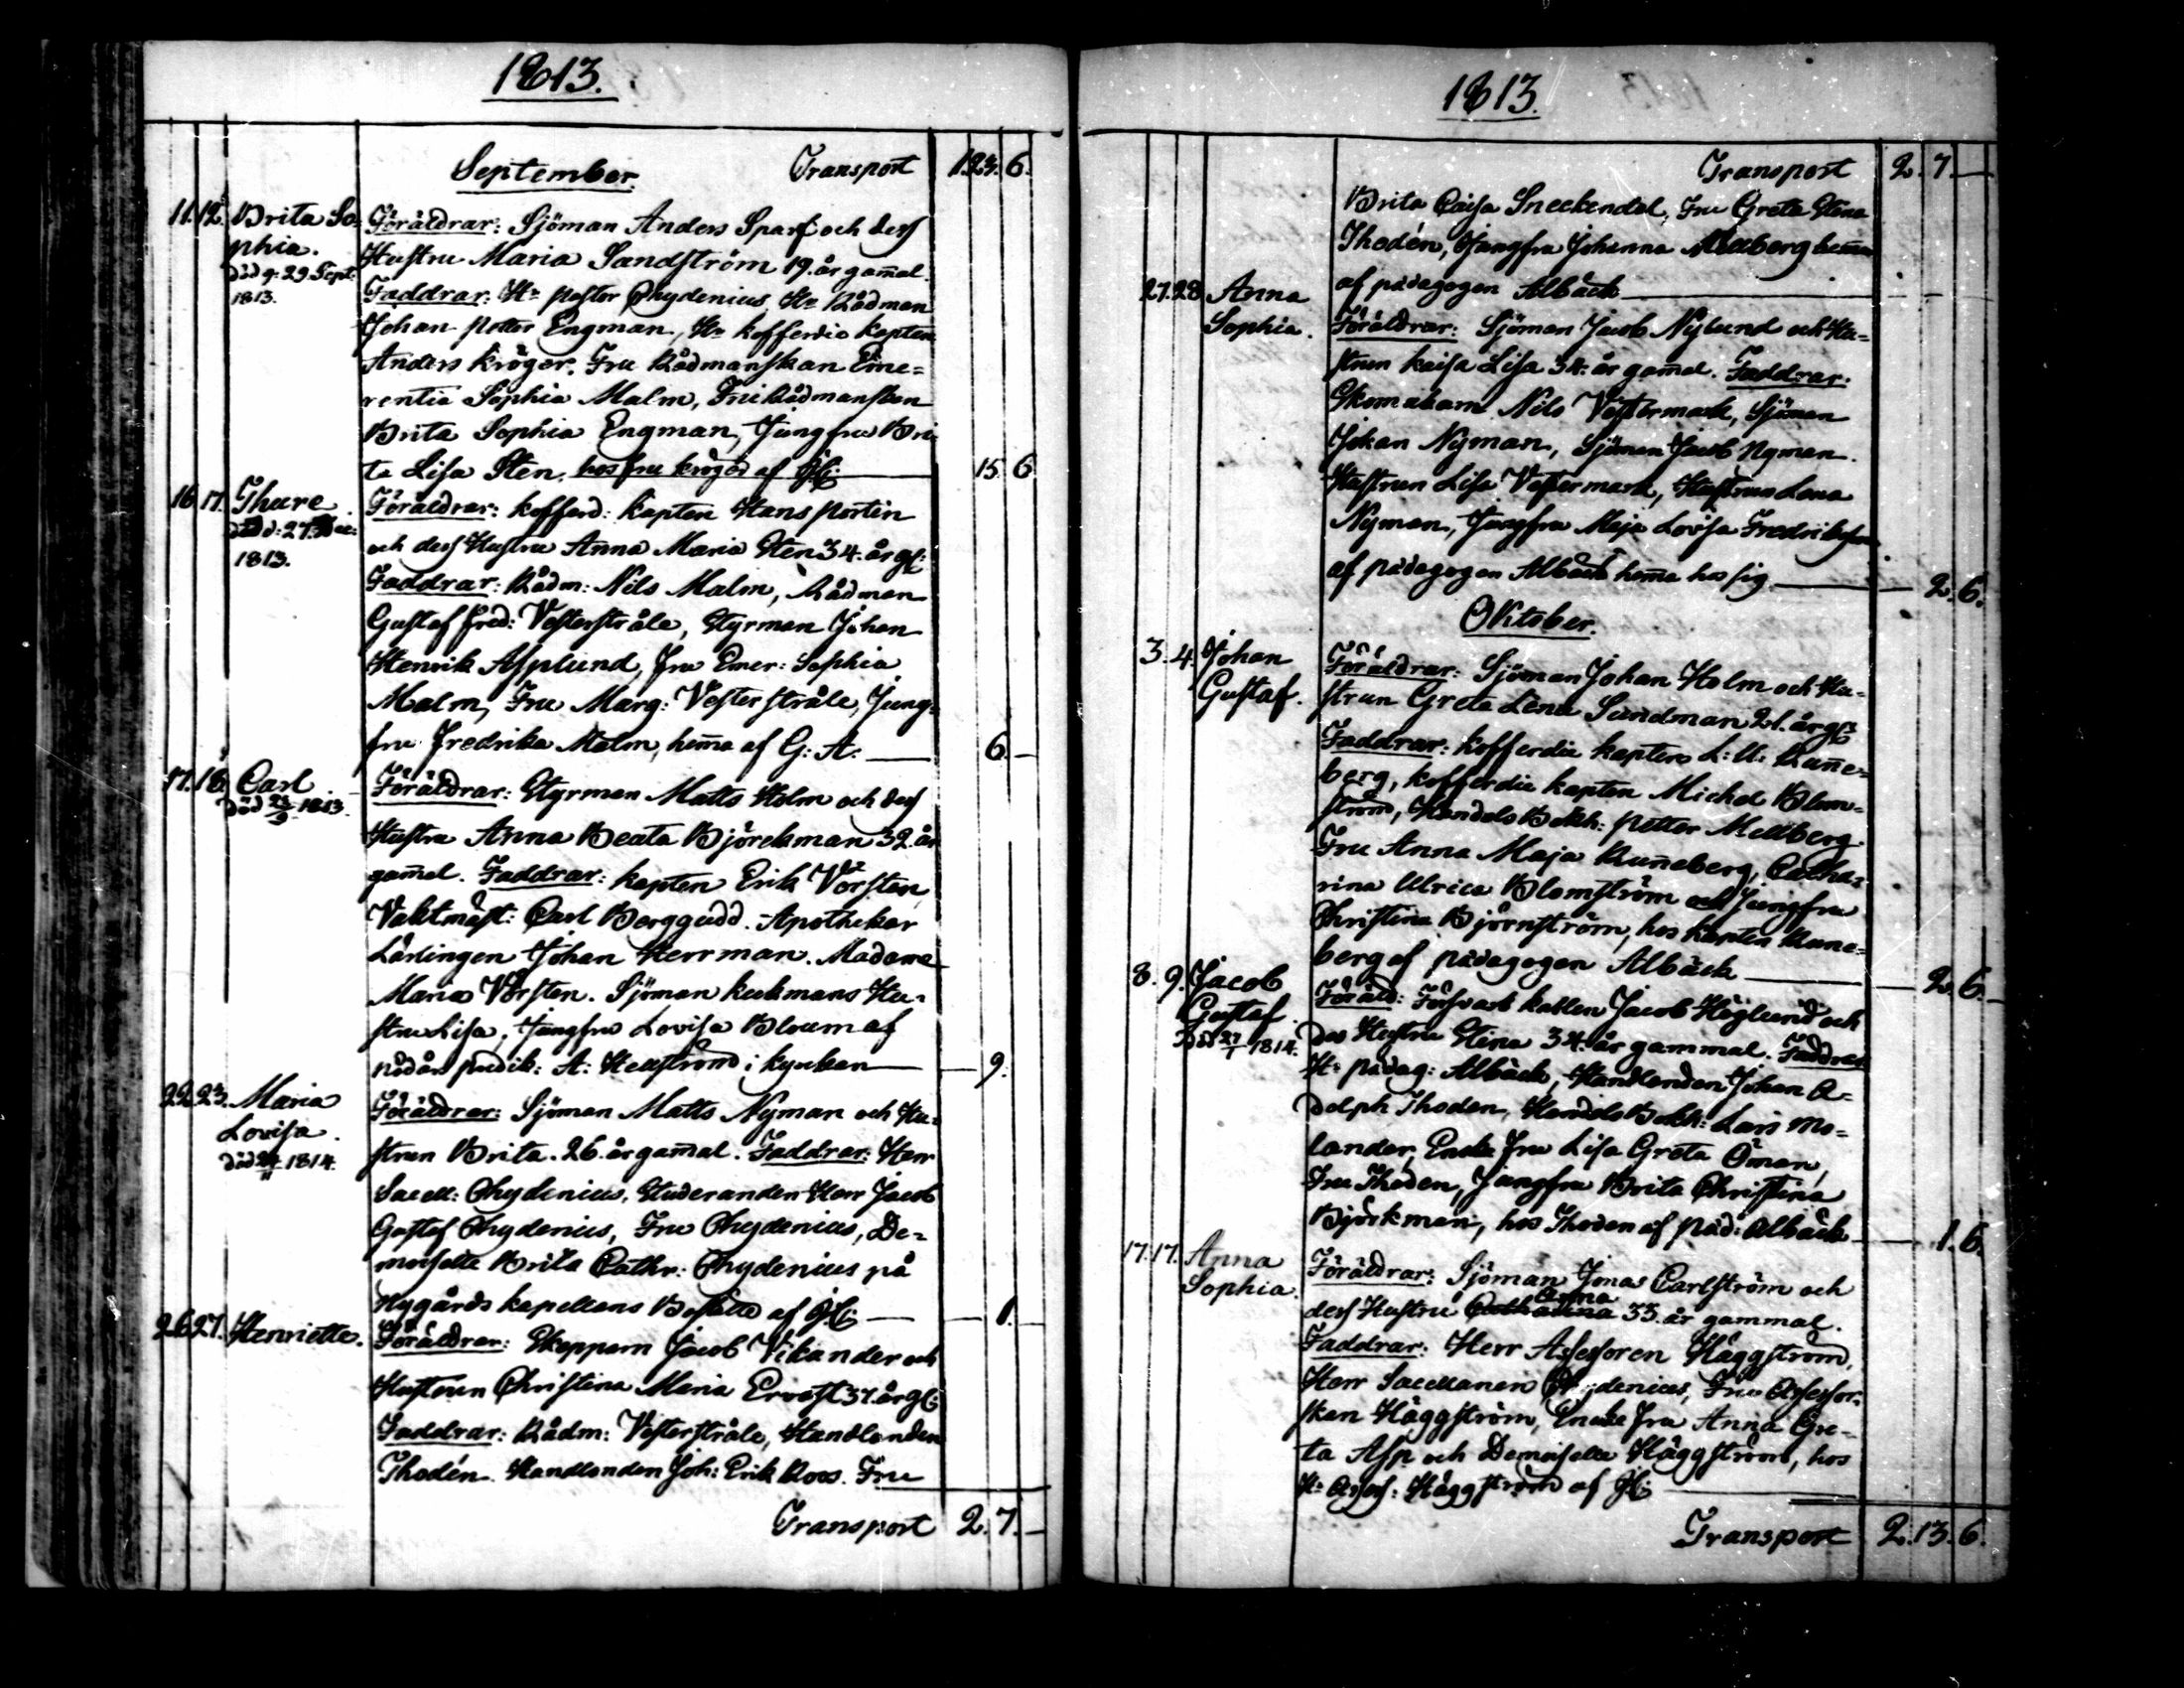 1813.
September. Transport 1.23. 6.
11. 12. Brita So-
phia.
död d: 29 Sept.
1813.
Föräldrar: Sjöman Anders Sparf och dess
Hustru Maria Sandström 19. år gam̄al.
Faddrar: Hr Pastor Chydenius, Hr Rådman
Johan Petter Engman, Hr Kofferdie Kapten
Anders Kröger. Fru Rådmanskan Eme-
rentia Sophia Malm, Fru Rådmanskan
Brita Sophia Engman, Jungfru Bri-
ta Lisa Sten, hos fru Kröger af 15. 6
16. 17. Thure.
död d: 27. Dec:
1813.
Föräldrar: Kofferd: Kapten Hans Portin
och dess Hustru Anna Maria Sten 34. år gl:
Faddrar: Rådm: Nils Malm, Rådman
Gustaf Fred: Vesterstråle, Styrman Johan
Henrik Asplund, Fru Emer: Sophia
Malm, Fru Marg: Vesterstråle, Jung-
fru Fredrika Malm, hem̄a af G: A: — 6. —
17. 18. Carl.
död 23/9 1813.
Föräldrar: Styrman Matts Holm och dess
Hustru Anna Beata Björckman 32. år
gam̄al. Faddrar: Kapten Erik Vörsten,
Vaktmäst: Carl Berggudd. Apothekar
Lärlingen Johan Herrman. Madame
Maria Vörsten. Sjöman Kuckmans Hu-
stru Lisa, Jungfru Lovisa Bloum af
nödår predik: A: Hellström i kyrkan — 9.
22. 23. Maria
Lovisa.
död 1814.
Föräldrar: Sjöman Matts Nyman och Hu-
strun Brita. 26. år gam̄al. Faddrar: Herr
Sacell: Chydenius, Studeranden Herr Jacob
Gustaf Chydenius, Fru Chydenius, De-
moiselle Brita Cathr: Chydenius på
Nygårds kapellans Boställe af — 1. —
26. 27. Henriette.
Föräldrar: Skeppern Jacob Vikander och
Hustrun Christina Maria Ervast 37. år gl:
Faddrar: Rådm: Vesterstråle, Handlanden
Thodén. Handlanden Joh: Erik Roos. Fru
Transport 2. 7. —
1813.
Transport 2. 7. —
Brita Caisa Sneckendal, Fru Greta Stina
Thodén, Jungfru Johanna Mellberg hem̄a
af pädagogen Albäck —
27. 28. Anna
Sophia.
Föräldrar: Sjöman Jacob Nylund och Hu-
strun Kaisa Lisa 34. år gam̄al. Faddrar:
Skomakarn Nils Vestermark, Sjöman
Johan Nyman, Sjöman Jacob Nyman.
Hustrun Lisa Vestermark, Hustrun Lena
Nyman, Jungfru Maja Lovisa
af pädagogen Albäck hem̄a hos sig — 2. 6.
Oktober.
3. 4. Johan
Gustaf.
Föräldrar: Sjöman Johan Holm och Hu-
strun Greta Lena Sundman 21. år gl:
Faddrar: Kofferdie Kapten L: U: Run̄e-
berg, Kofferdie Kapten Michel Blom-
ström, Handels Bokh: Petter Mellberg.
Fru Anna Maja Run̄eberg, Catha-
rina Ulrica Blomström och Jungfru
Christina Björnström, hos Kapten Rune-
berg af pädagogen Albäck — 2. 6.
8. 9. Jacob
Gustaf.
död 27/1 1814.
Föräld: Försvars karlen Jacob Höglund och
des Hustru Stina 34. år gammal. Faddrar
Hr pädag: Albäck, Handlanden Johan A-
dolph Thoden, Handels Bokh: Lars Mo-
lander, Enke Fru Lisa Greta Öman,
Fru Thoden, Jungfru Brita Christina
Björkman, hos Thoden af päd: Albäck — 1. 6.
17. 17. Anna
Sophia.
Föräldrar: Sjöman Jonas Carlström och
Anna
dess Hustru Catharina 33. år gammal.
Faddrar: Herr Assessoren Häggström,
Herr Sacellanen Chydenius, Fru Assessor-
skan Häggström, Enke Fru Anna Gre-
ta Asp och Demoiselle Häggström, hos
Hr Assess: Häggström af
Transport 2. 13. 6.